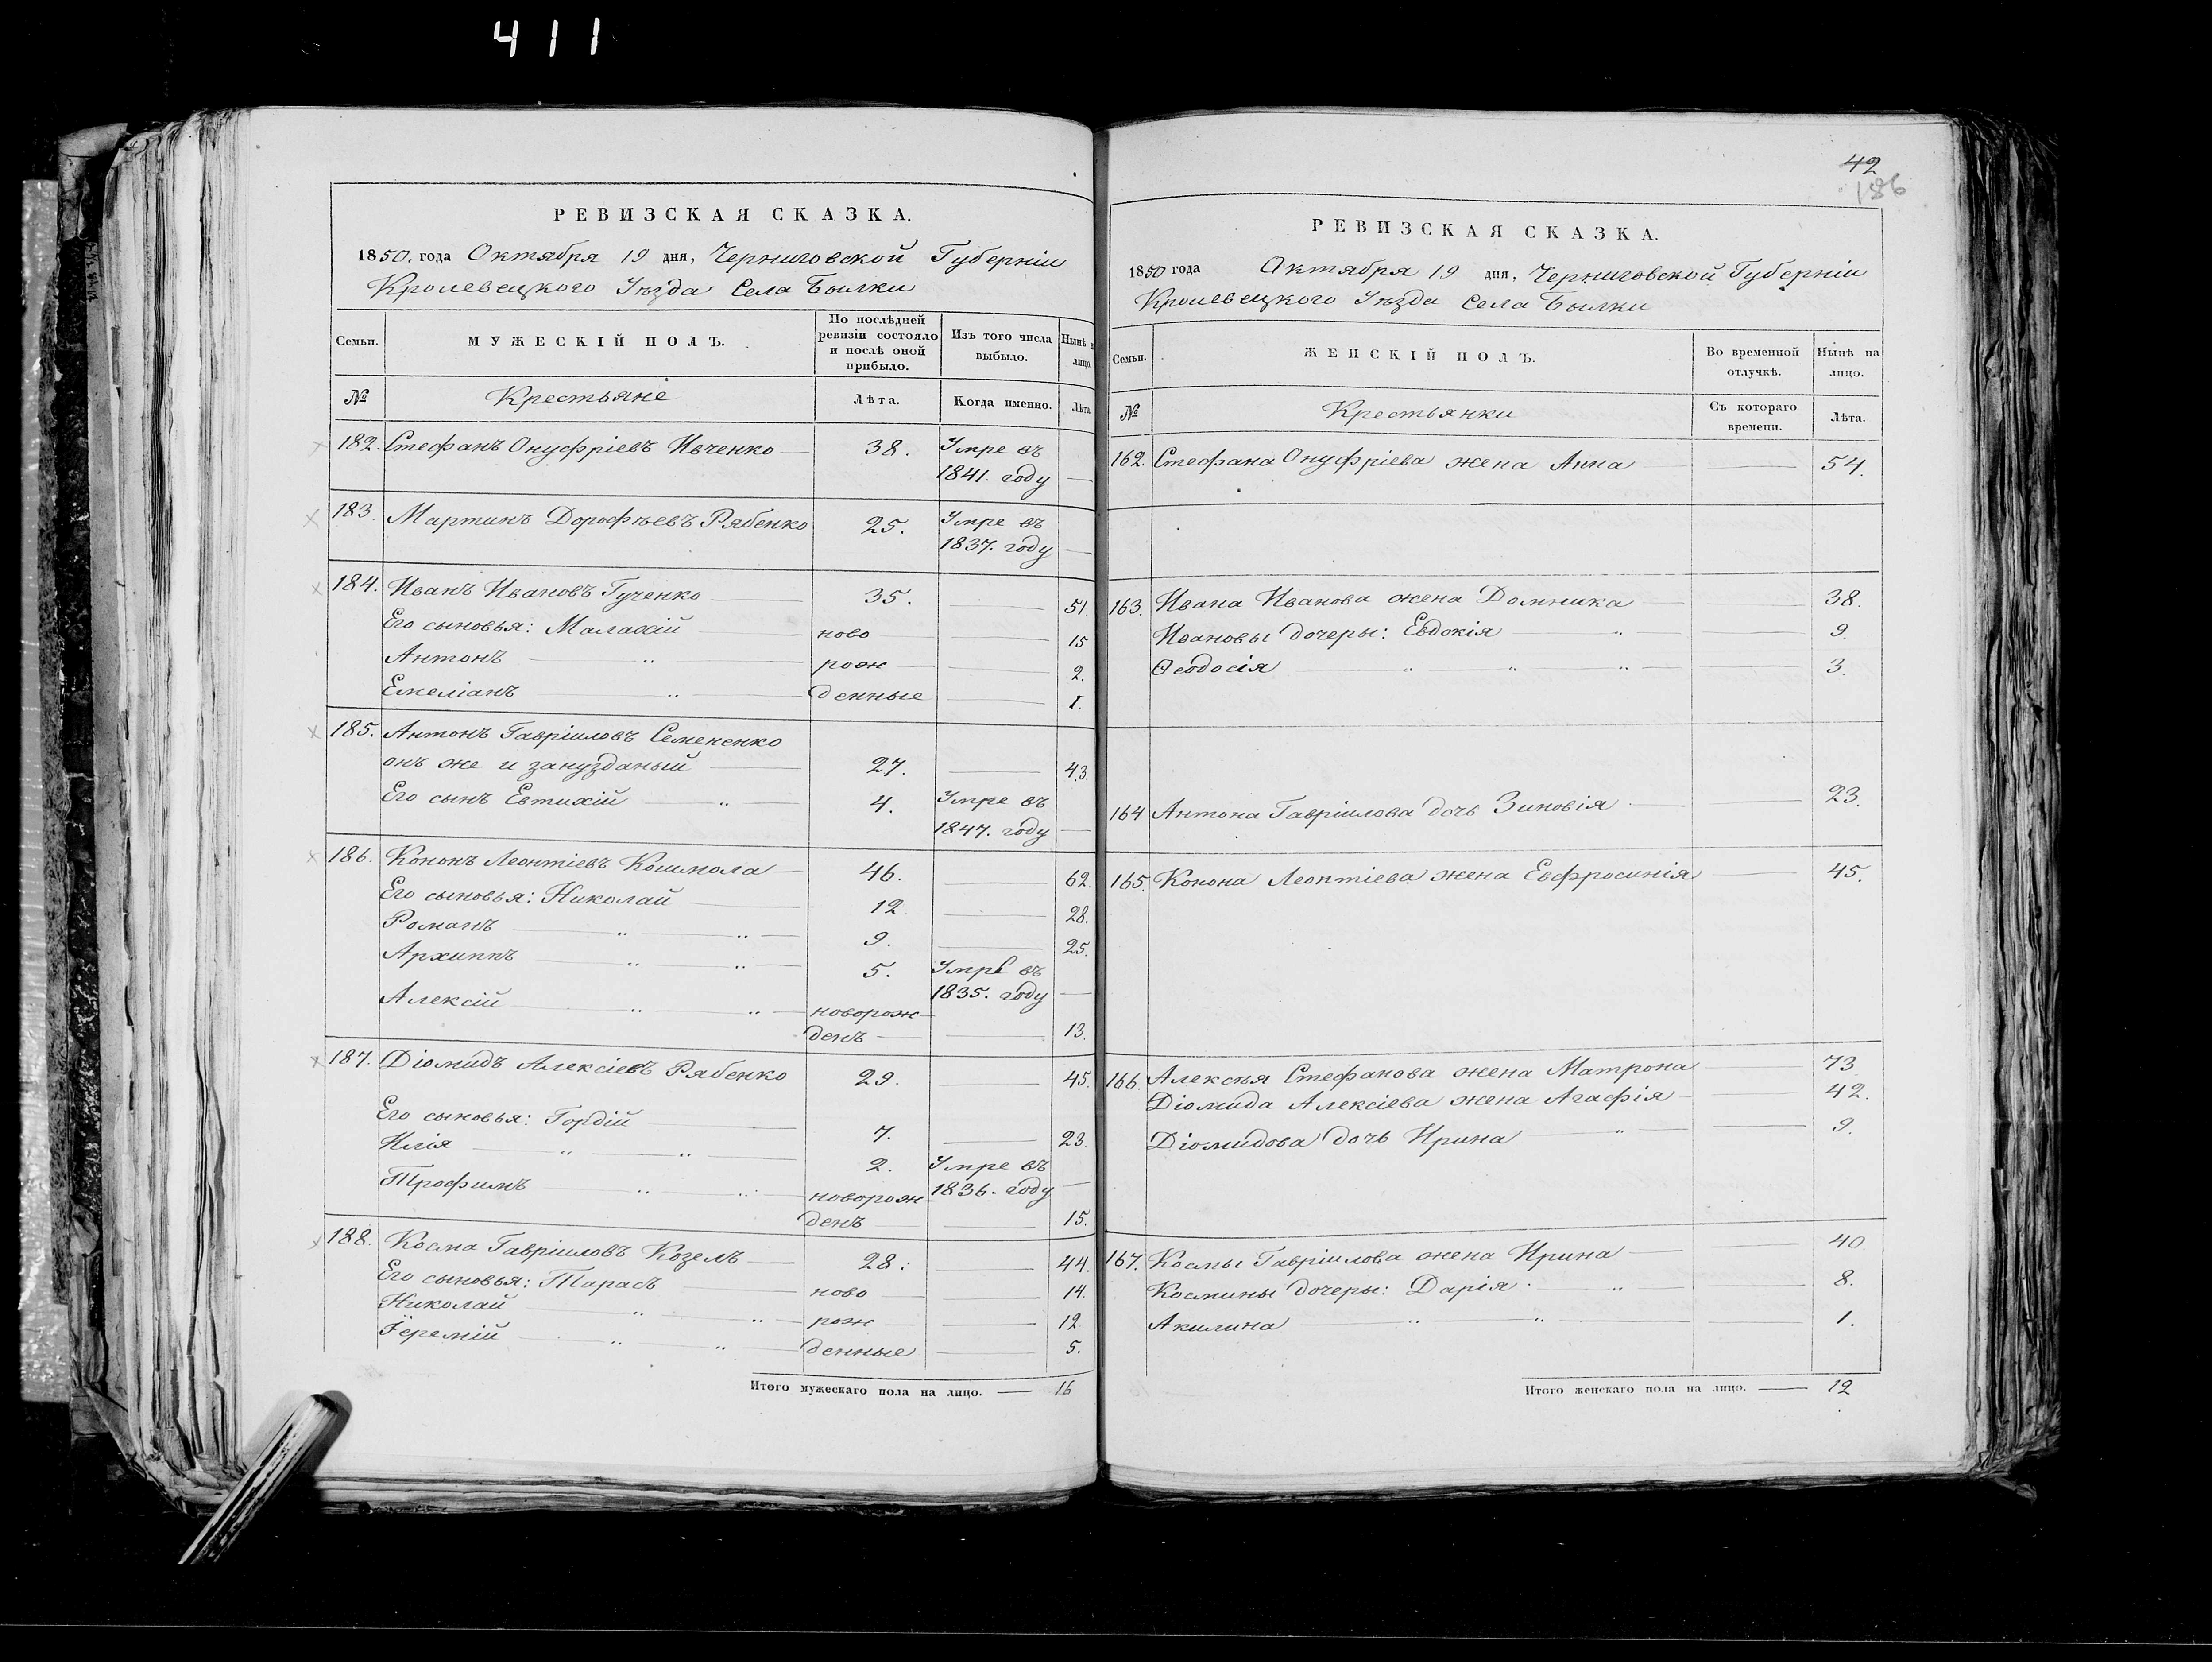 411
РЕВИЗСКАЯ СКАЗКА.
1850. года Октября 19 дня, Черниговской Губерніи
Кролевецкого Уѣзда Села Былки
Семьи.
МУЖЕСКІЙ ПОЛЪ.
По послѣдней ревизіи состояло и послѣ оной прибыло.
Изъ того числа выбыло.
Нынѣ на лицо.
№
Крестьяне
Лѣта.
Когда именно.
Лѣта.
182. Стефанъ Онуфріевъ Ивченко 38. Умре въ
1841. году
183. Мартинъ Дорофѣевъ Рябенко 25. Умре въ
1837. году
184. Иванъ Ивановъ Гученко 35. 51.
Его сыновья: Малахій ново 15
Антонъ „ рож 2.
Емеліанъ „ денные 1.
185. Антонъ Гавріиловъ Семененко
онъ же и занузданый 27. 43.
Его сынъ Евтихій „ 4. Умре въ
1847. году
186. Кононъ Леонтіевъ Кошмола 46. 62.
Его сыновья: Николай 12 28.
Романъ „ „ 9. 25.
Архиппъ „ „ 5. Умре въ
1835. году
Алексій „ „ новорож
денъ 13.
187. Діомидъ Алексіевъ Рябенко 29. 45.
Его сыновья: Гордій 7. 23.
Илія „ „ 2. Умре въ
1836. году
Трофимъ „ „ новорож
денъ 15.
188. Косма Гавріиловъ Козелъ 28. 44.
Его сыновья: Тарасъ ново 14.
Николай „ „ рож 12.
Іеремій „ „ денные 5.
Итого мужескаго пола на лицо. 16
42
186
РЕВИЗСКАЯ СКАЗКА.
1850 года Октября 19 дня, Черниговской Губерніи
Кролевецкого Уѣзда Села Былки
Семьи.
ЖЕНСКІЙ ПОЛЪ.
Во временной отлучкѣ.
Нынѣ на лицо.
№
Крестьянки
Съ котораго времени.
Лѣта.
162. Стефана Онуфріева жена Анна 54.
163. Ивана Иванова жена Домника 38.
Ивановы дочеры: Евдокія „ 9.
Ѳеодосія „ „ „ 3.
164 Антона Гавріилова дочь Зиновія 23.
165. Конона Леонтіева жена Евфросинія 45.
166. Алексѣя Стефанова жена Матрона 73
Діомида Алексіева жена Агафія 42.
Діомидова дочь Ирина „ 9.
167. Космы Гавріилова жена Ирина 40
Космины дочеры: Дарія „ 8.
Акилина „ „ 1.
Итого женскаго пола на лицо. 12